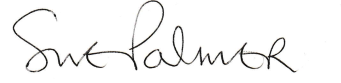 Sue Palmer